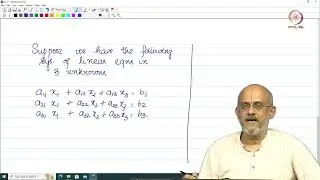 Suppose we have the following
sys. of linear eqns in
3 unknowns
a₁₁ x₁ + a₁₂ x₂ + a₁₃ x₃ = b₁
a₂₁ x₁ + a₂₂ x₂ + a₂₃ x₃ = b₂
a₃₁ x₁ + a₃₂ x₂ + a₃₃ x₃ = b₃